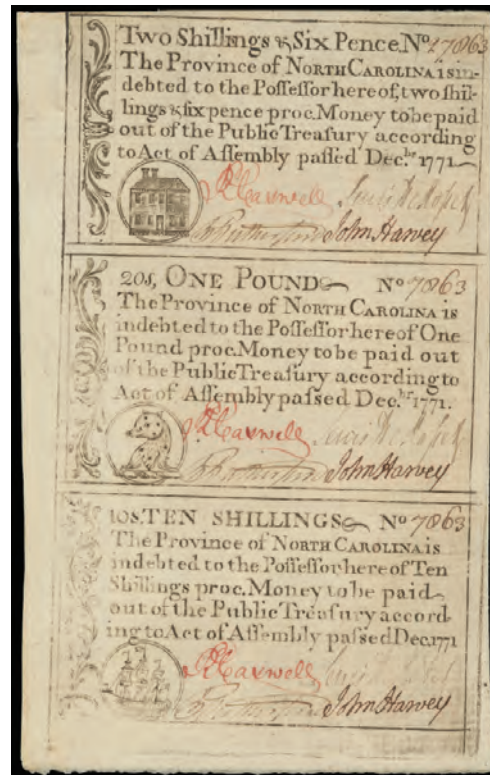 Two Shillings & Six Pence. No 17863
The Province of NORTH CAROLINA is in-
debted to the Poſſeſſor hereof, two ſhil-
lings & ſix pence proc. Money to be paid
out of the Public Treaſury according
to Act of Aſſembly paſſed Dec.br 1771
RCaswell
Lewis DeRosset
JRutherfurd John Harvey
20s, ONE POUND No 7863
The Province of NORTH CAROLINA is
indebted to the Poſſeſſor hereof One
Pound proc. Money to be paid out
of the Public Treaſury according to
Act of Aſſembly paſſed Dec.br 1771.
RCaswell
Lewis DeRosset
JRutherfurd John Harvey
10s. TEN SHILLINGS No 7863
The Province of NORTH CAROLINA is
indebted to the Poſſeſſor hereof Ten
Shillings proc. Money to be paid
out of the Public Treaſury accord
ing to Act of Aſſembly paſſed Dec. 1771
RCaswell
JRutherfurd John Harvey